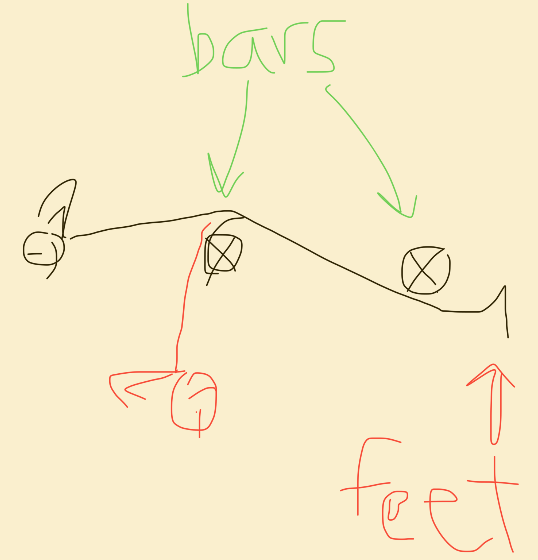 bars
feet